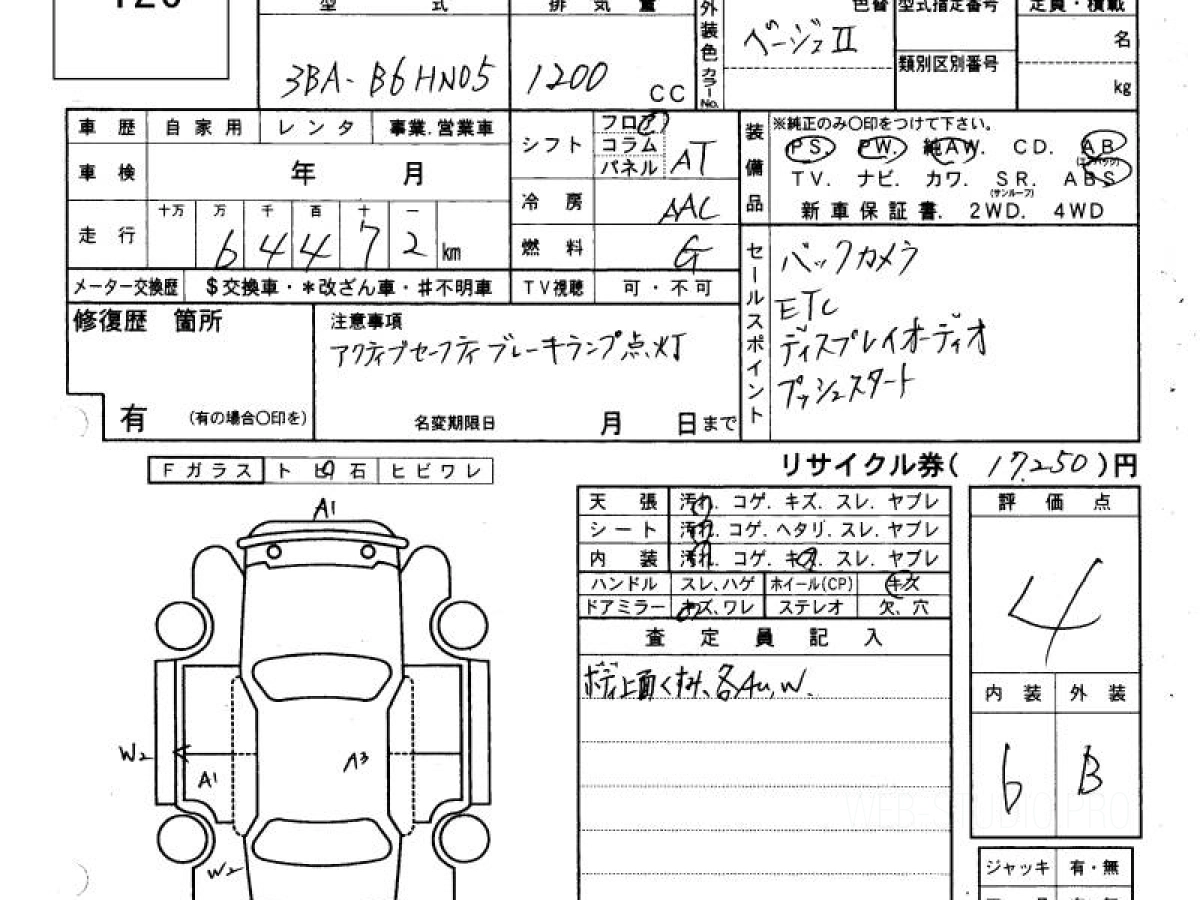 型 式 排 気 量 外装色 色替 型式指定番号 定員・積載
3BA-B6HN05 1200 CC カラーNo. ベージュⅡ 類別区別番号 名
kg
車 歴 自 家 用 レ ン タ 事業.営業車 シフト フロア コラム パネル AT 装備品 ※純正のみ〇印をつけて下さい。
PS. PW. 純AW. CD. AB(エアバッグ)
車 検 年 月 TV. ナビ. カワ. SR.(サンルーフ) ABS
冷 房 AAC 新車保証書. 2WD. 4WD
走 行 十万 万 千 百 十 一
6 4 4 7 2 km 燃 料 G セールスポイント バックカメラ
メーター交換歴 $交換車・*改ざん車・#不明車 TV視聴 可・不可 ETC
修復歴 箇所 注意事項 ディスプレイオーディオ
アクティブセーフティブレーキランプ点灯 プッシュスタート
有 (有の場合〇印を) 名変期限日 月 日まで
Fガラス トビ石 ヒビワレ リサイクル券( 17,250 )円
天 張 汚れ. コゲ. キズ. スレ. ヤブレ 評 価 点
シート 汚れ. コゲ. ヘタリ. スレ. ヤブレ
内 装 汚れ. コゲ. キズ. スレ. ヤブレ
ハンドル スレ、ハゲ ホイール(CP) キズ
ドアミラー キズ、ワレ ステレオ 欠、穴
4
査 定 員 記 入
ボディ上面くすみ、各AU,W.
内 装 外 装
6 B
A1
W2
A1
A3
W2
ジャッキ 有・無